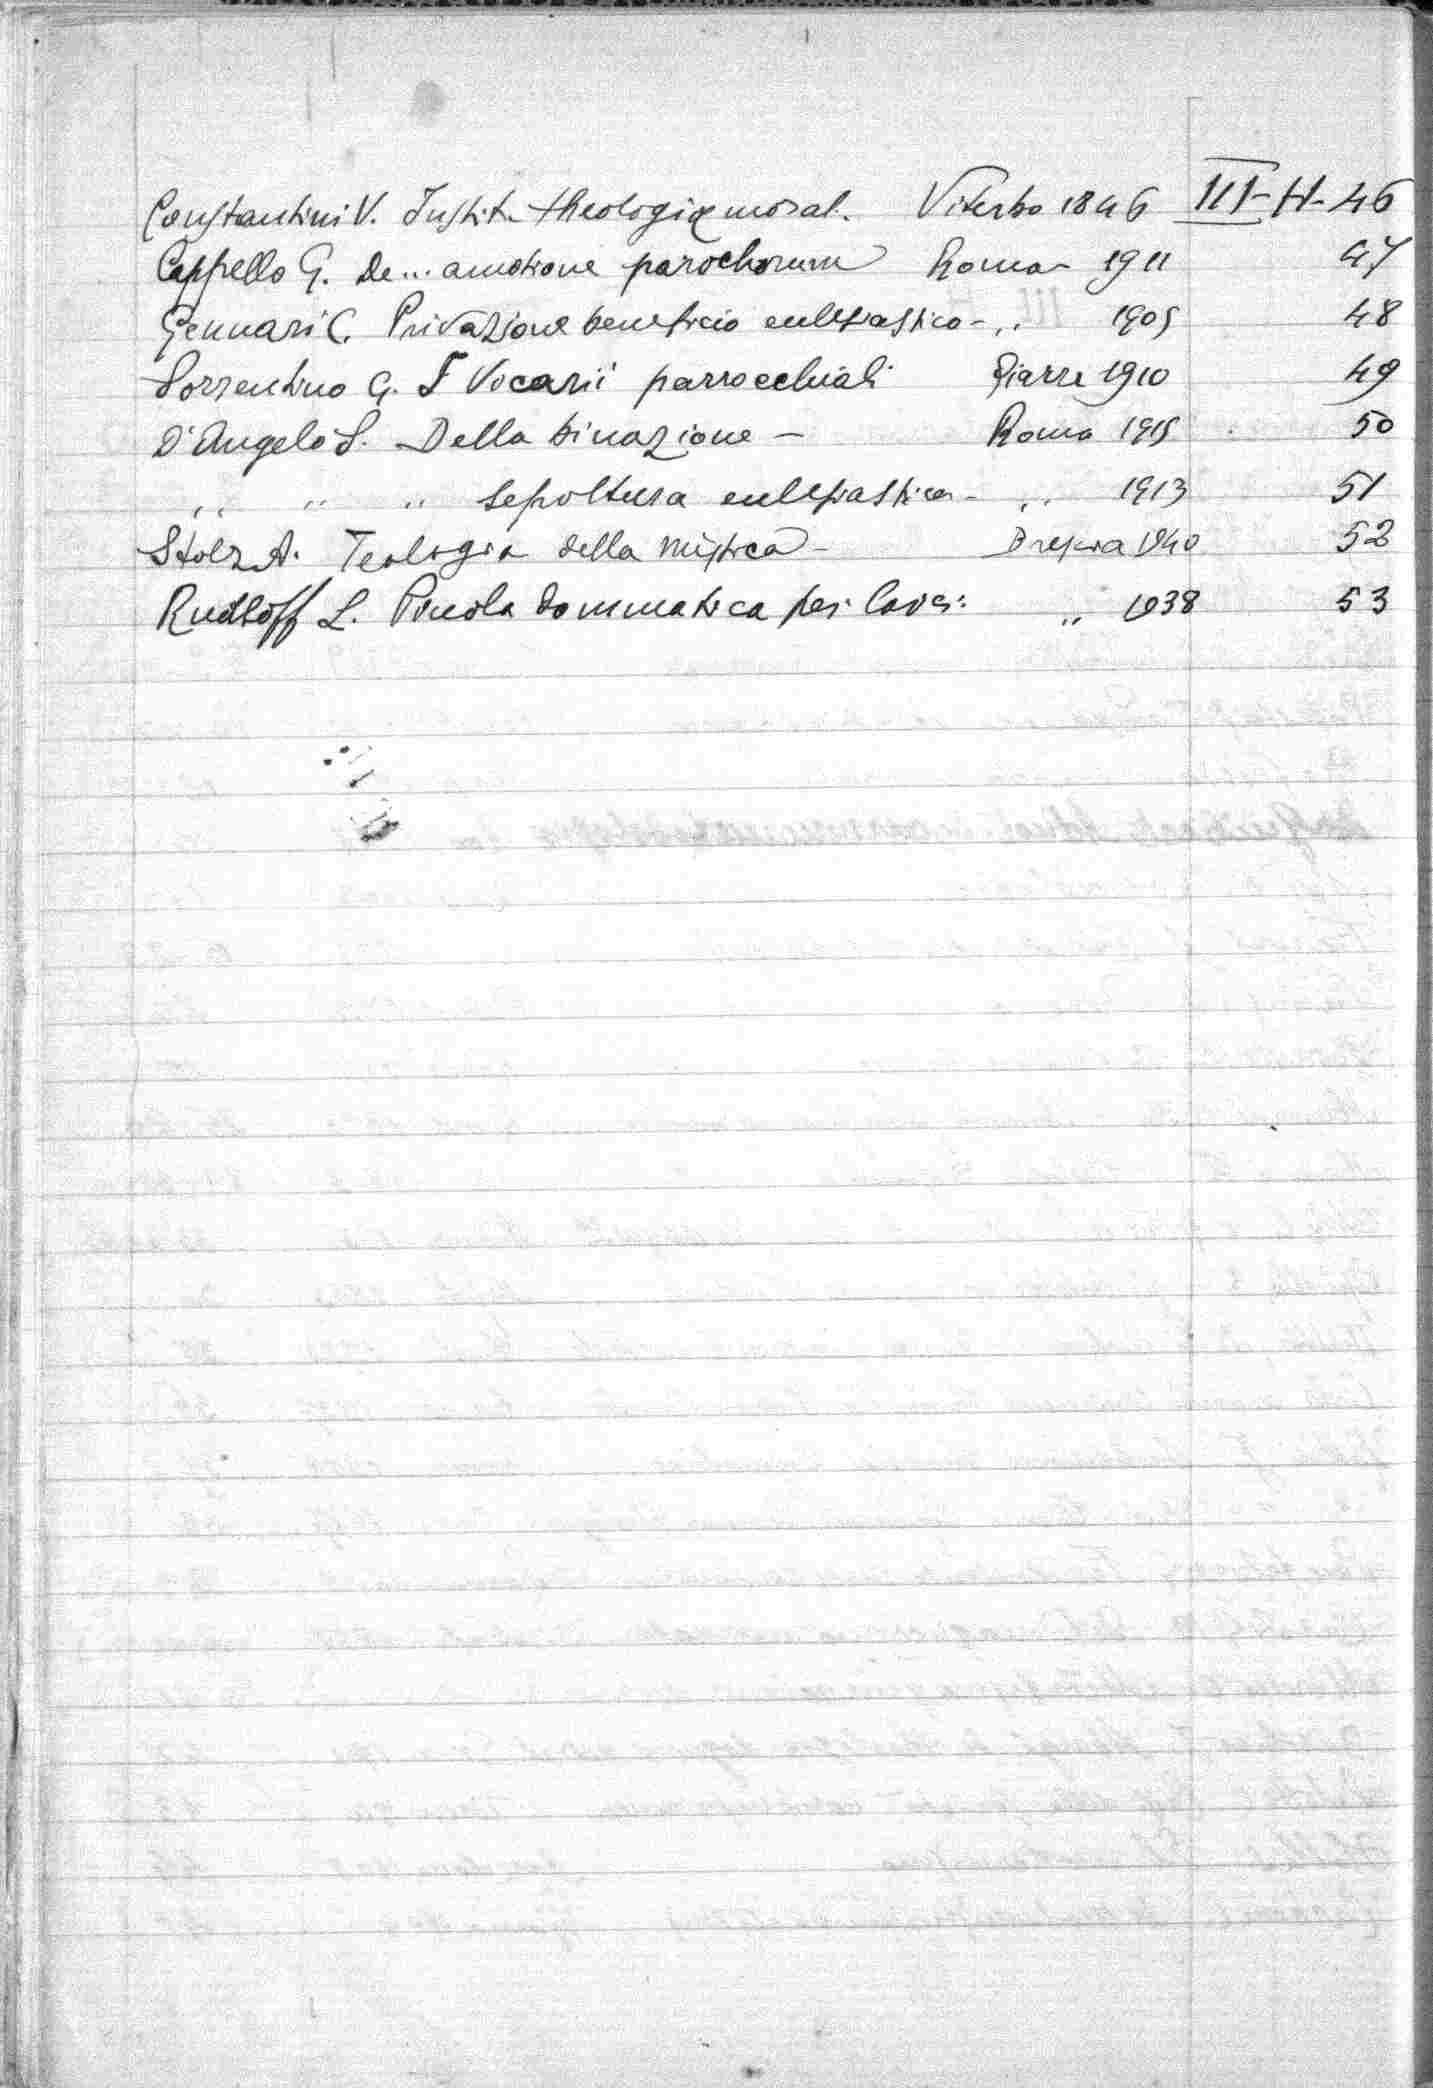 Constantini V. Instit. theologiæ moral. Viterbo 1846 III-H-46
Cappello G. De... amotione parochorum Roma - 1911 47
Gennari C. Privazione beneficio ecclesiastico - ,, 1905 48
Sorrentino G. I Vicarii parrocchiali Giarre 1910 49
D'Angelo S. Della binazione - Roma 1915 50
,, ,, ,, Sepoltura ecclesiastica - ,, 1913 51
Stolz A. Teologia della mistica - Brescia 1940 52
Rudloff L. Piccola dommatica per laici: ,, 1938 53